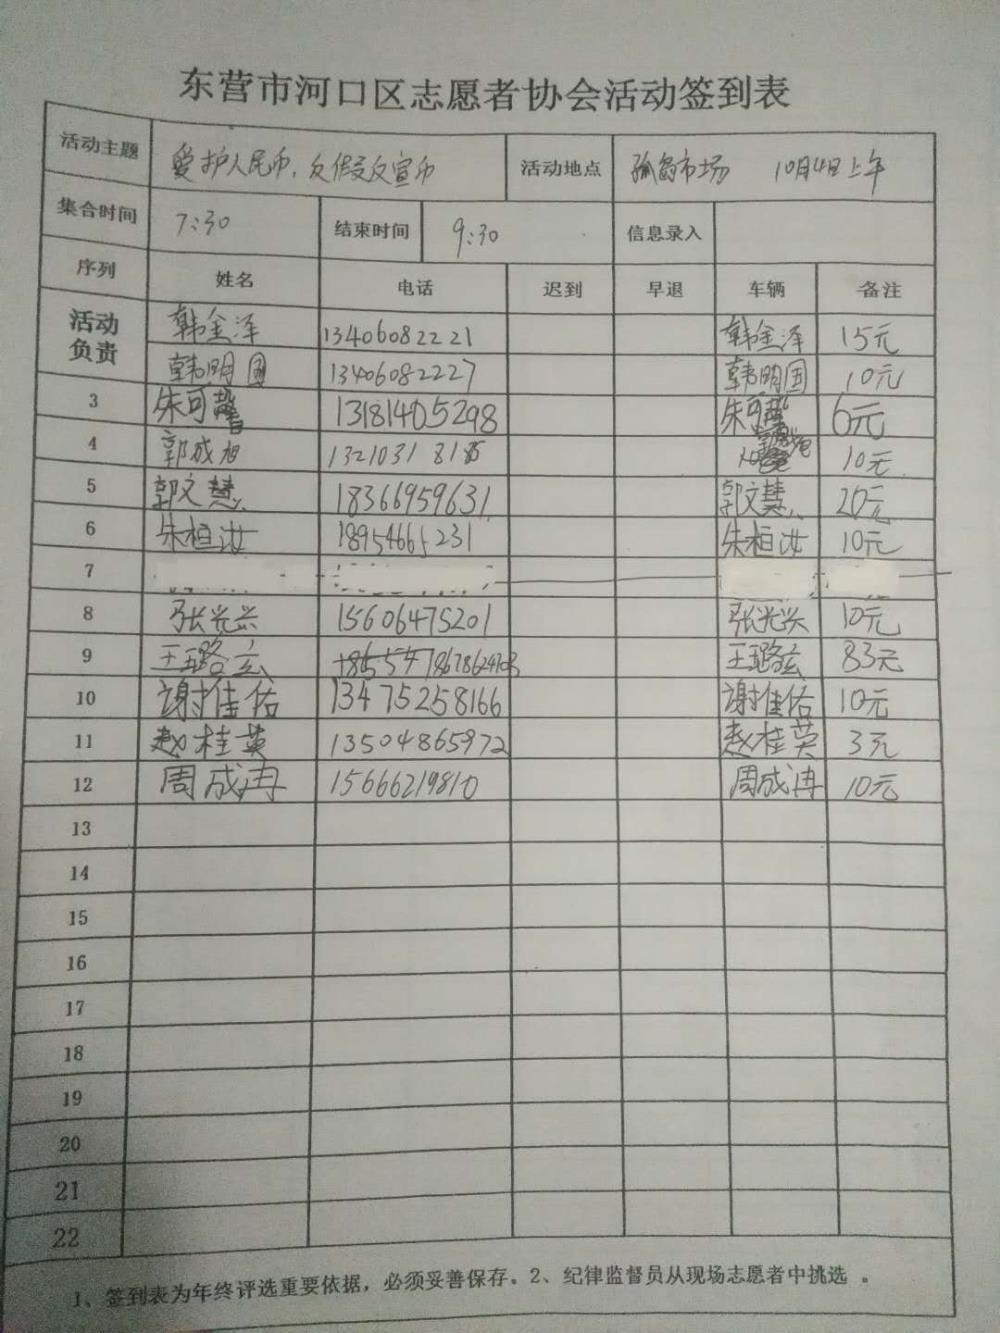 东营市河口区志愿者协会活动签到表
活动主题 爱护人民币,反假反宣币 活动地点 孤岛市场 10月4日上午
集合时间 7:30 结束时间 9:30 信息录入
序列 姓名 电话 迟到 早退 车辆 备注
活动负责 韩金泽 13406082221 韩金泽 15元
韩明国 13406082227 韩明国 10元
3 朱可馨 13181405298 朱可馨 6元
4 郭成旭 1321031 10元
5 郭文慧 18366959631 郭文慧 20元
6 朱桓汝 18954665231 朱桓汝 10元
7
8 张光兴 15606475201 张光兴 10元
9 王璐玄 王璐玄 83元
10 谢佳佑 13475258166 谢佳佑 10元
11 赵桂英 13504865972 赵桂英 3元
12 周成冉 15666219810 周成冉 10元
13
14
15
16
17
18
19
20
21
22
1、签到表为年终评选重要依据,必须妥善保存。2、纪律监督员从现场志愿者中挑选 。